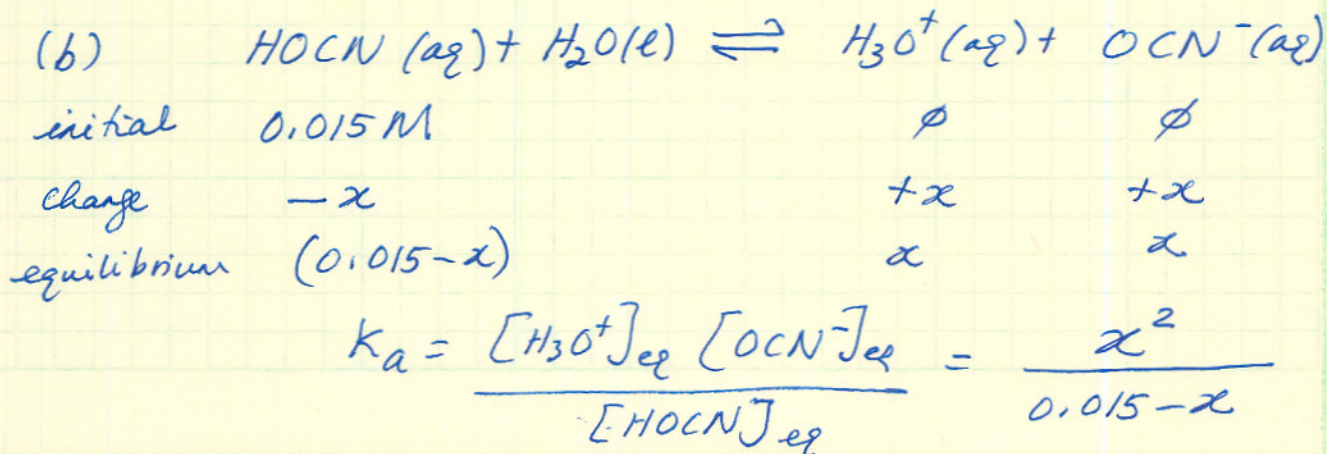 (b) HOCN (aq) + H₂O(l) ⇌ H₃O⁺ (aq) + OCN⁻ (aq)
initial 0.015 M ø ø
change – x +x +x
equilibrium (0.015–x) x x
Ka = [H₃O⁺]eq [OCN⁻]eq / [HOCN]eq = x² / 0.015–x